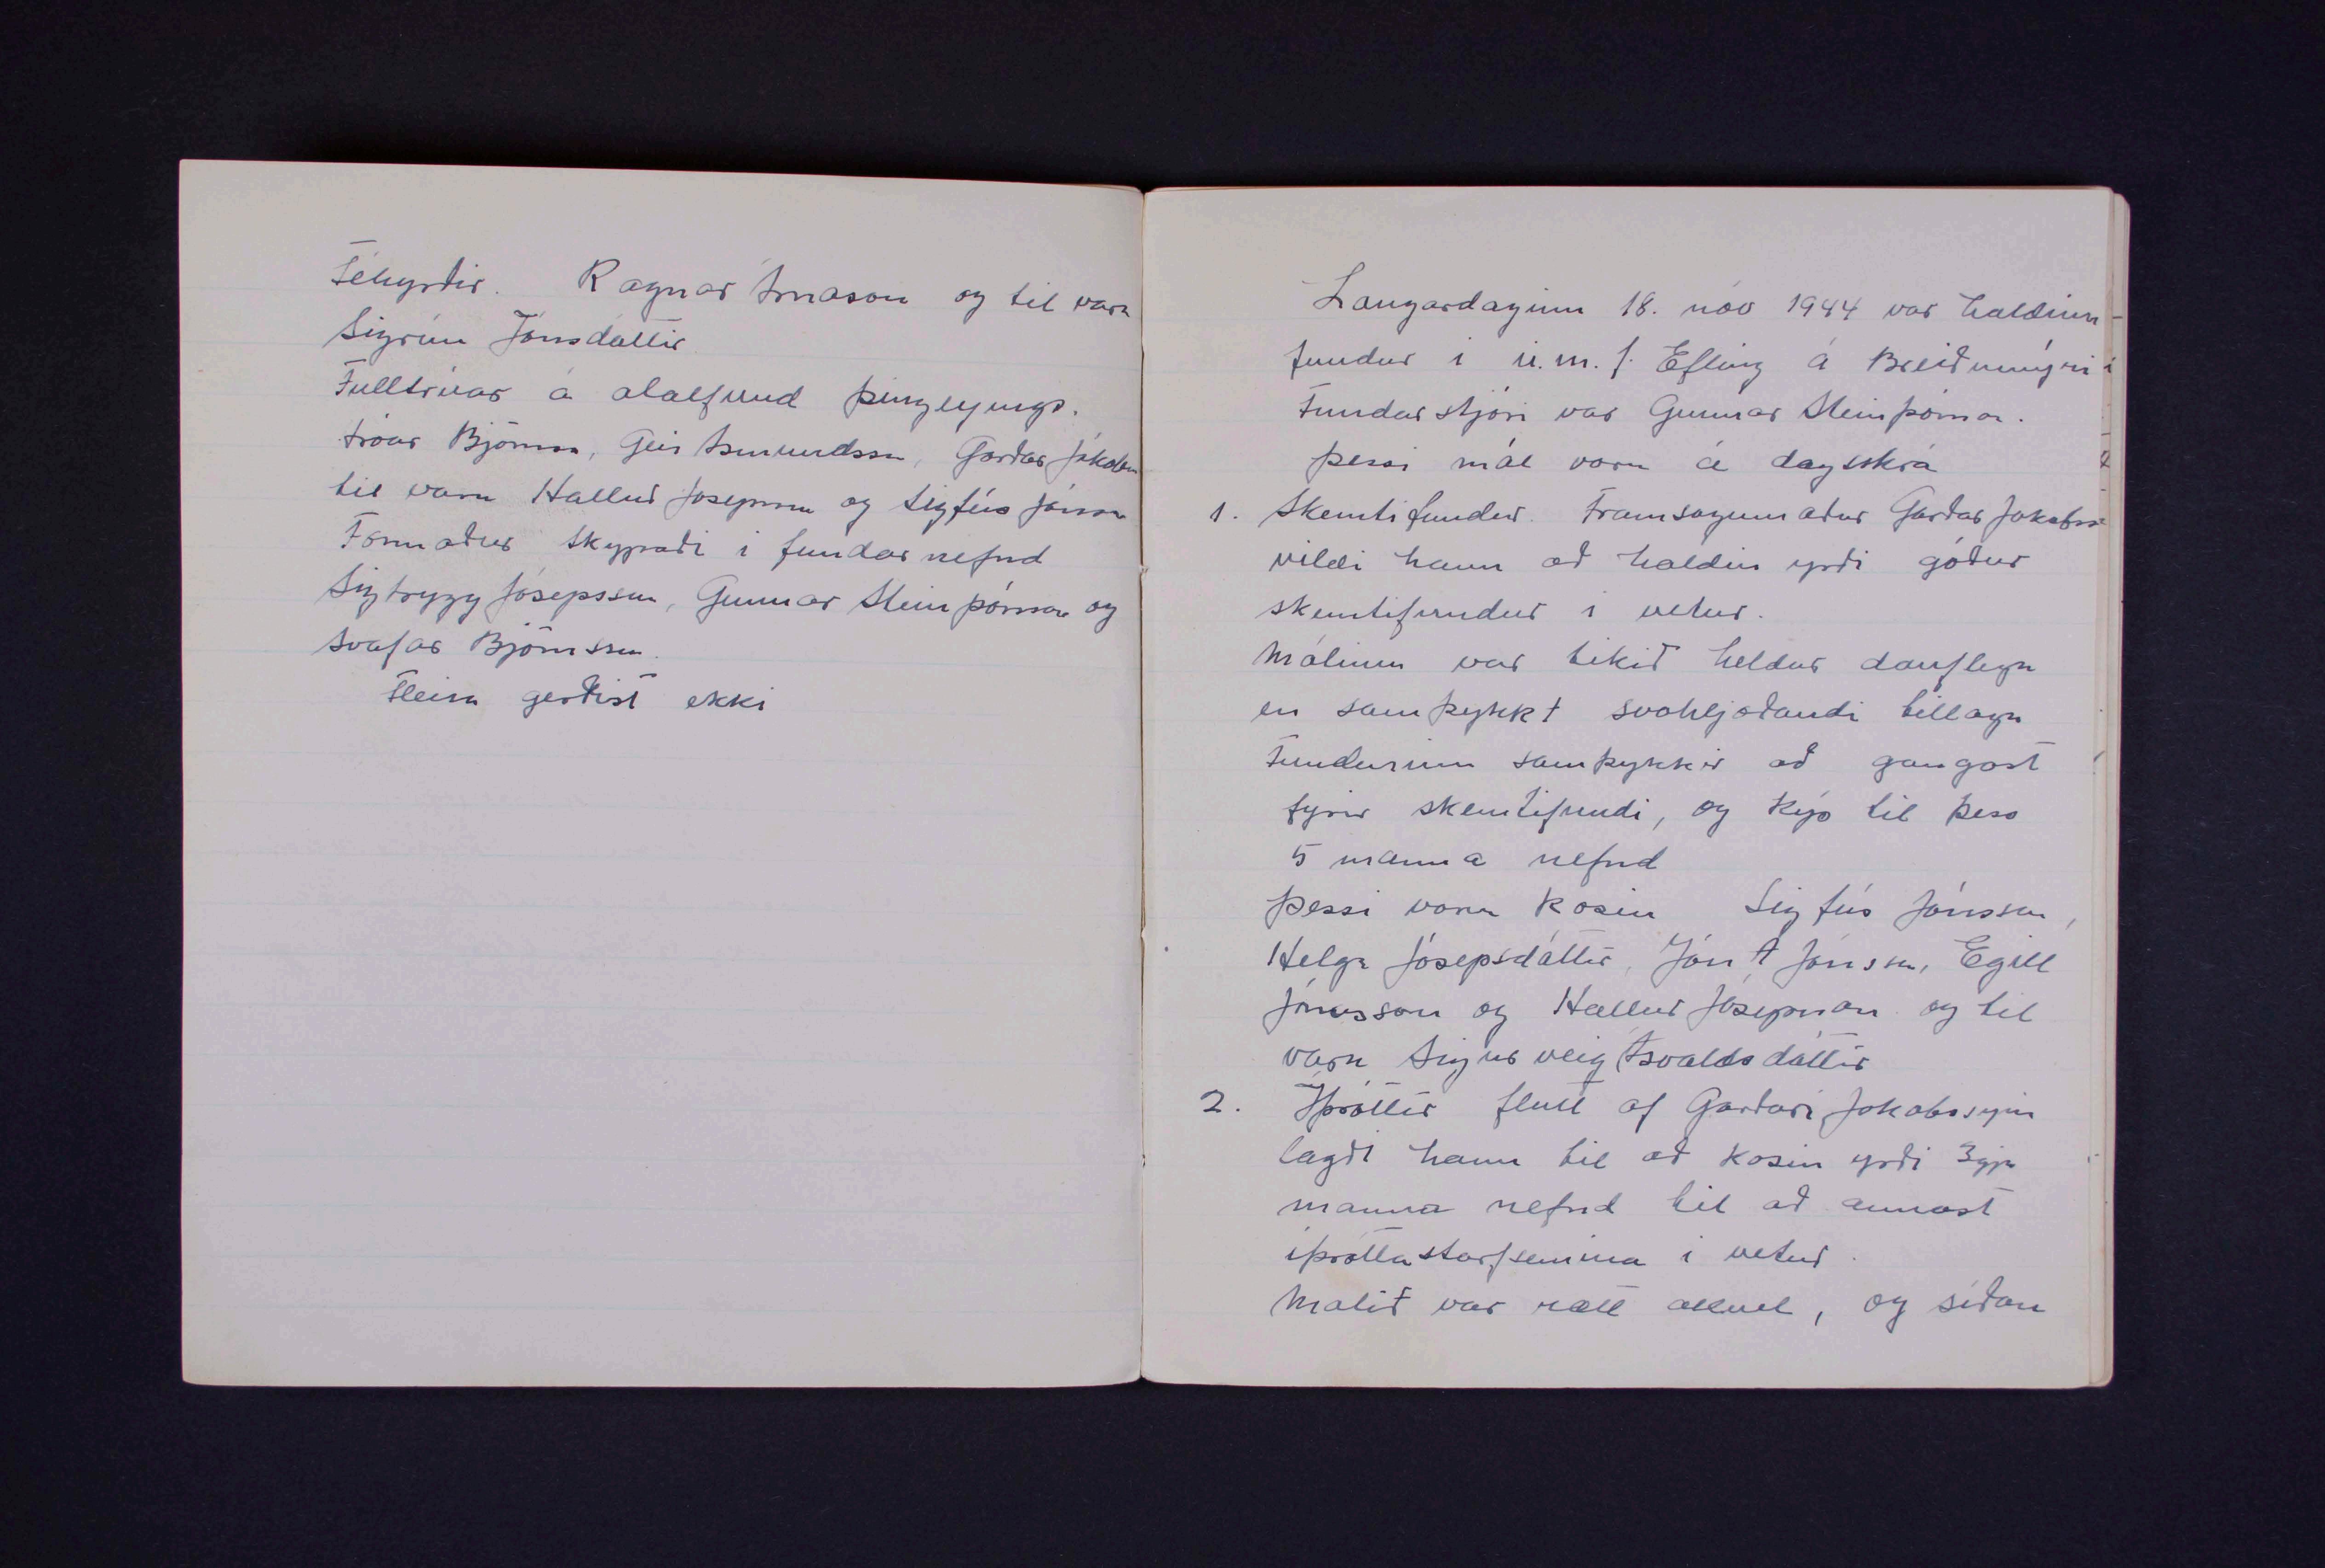 Féhyrðir. Ragnar Árnason og til vara
Sigrún Jónsdóttir
Fulltrúar á aðalfund þingeyinga.
Þróar Björnson, Geir Ásmundsson, Garðar Jakobson
til vara Hallur Jósepsson og Sigfús Jónsson
Formaður skypaði i fundarnefnd
Sigtrygg Jósepsson, Gunnar Steinþórsson og
Svafar Björnsson.
Fleira gerðist ekki
Laugardaginn 18. nóv 1944 var haldinn
fundur i u.m.f. Efling á Breiðumýri
Fundarstjóri var Gunnar Steinþórsson.
þessi mál voru á dagskrá
1. Skemtifundur. Framsögumaður Garðar Jakobsson
vildi hann að haldin yrði góður
skemtifundur i vetur.
Málinu var tekið heldur dauflega
en samþykkt svohljóðandi tillaga
Fundurinn samþykkir að gangast
fyrir skemtifundi, og kýs til þess
5 manna nefnd
þessi voru kosin Sigfús Jónsson,
Helga Jósepsdóttir, Jón A Jónsson, Egill
Jónasson og Hallur Jósepsson og til
vara Sigurveig Ásvaldsdóttir
2. Íþróttir flutt af Garðari Jakobssyni
lagði hann til að kosin yrði 3gja
manna nefnd til að annast
íþróttastarfsemina i vetur.
Málið var rætt allvel, og síðan